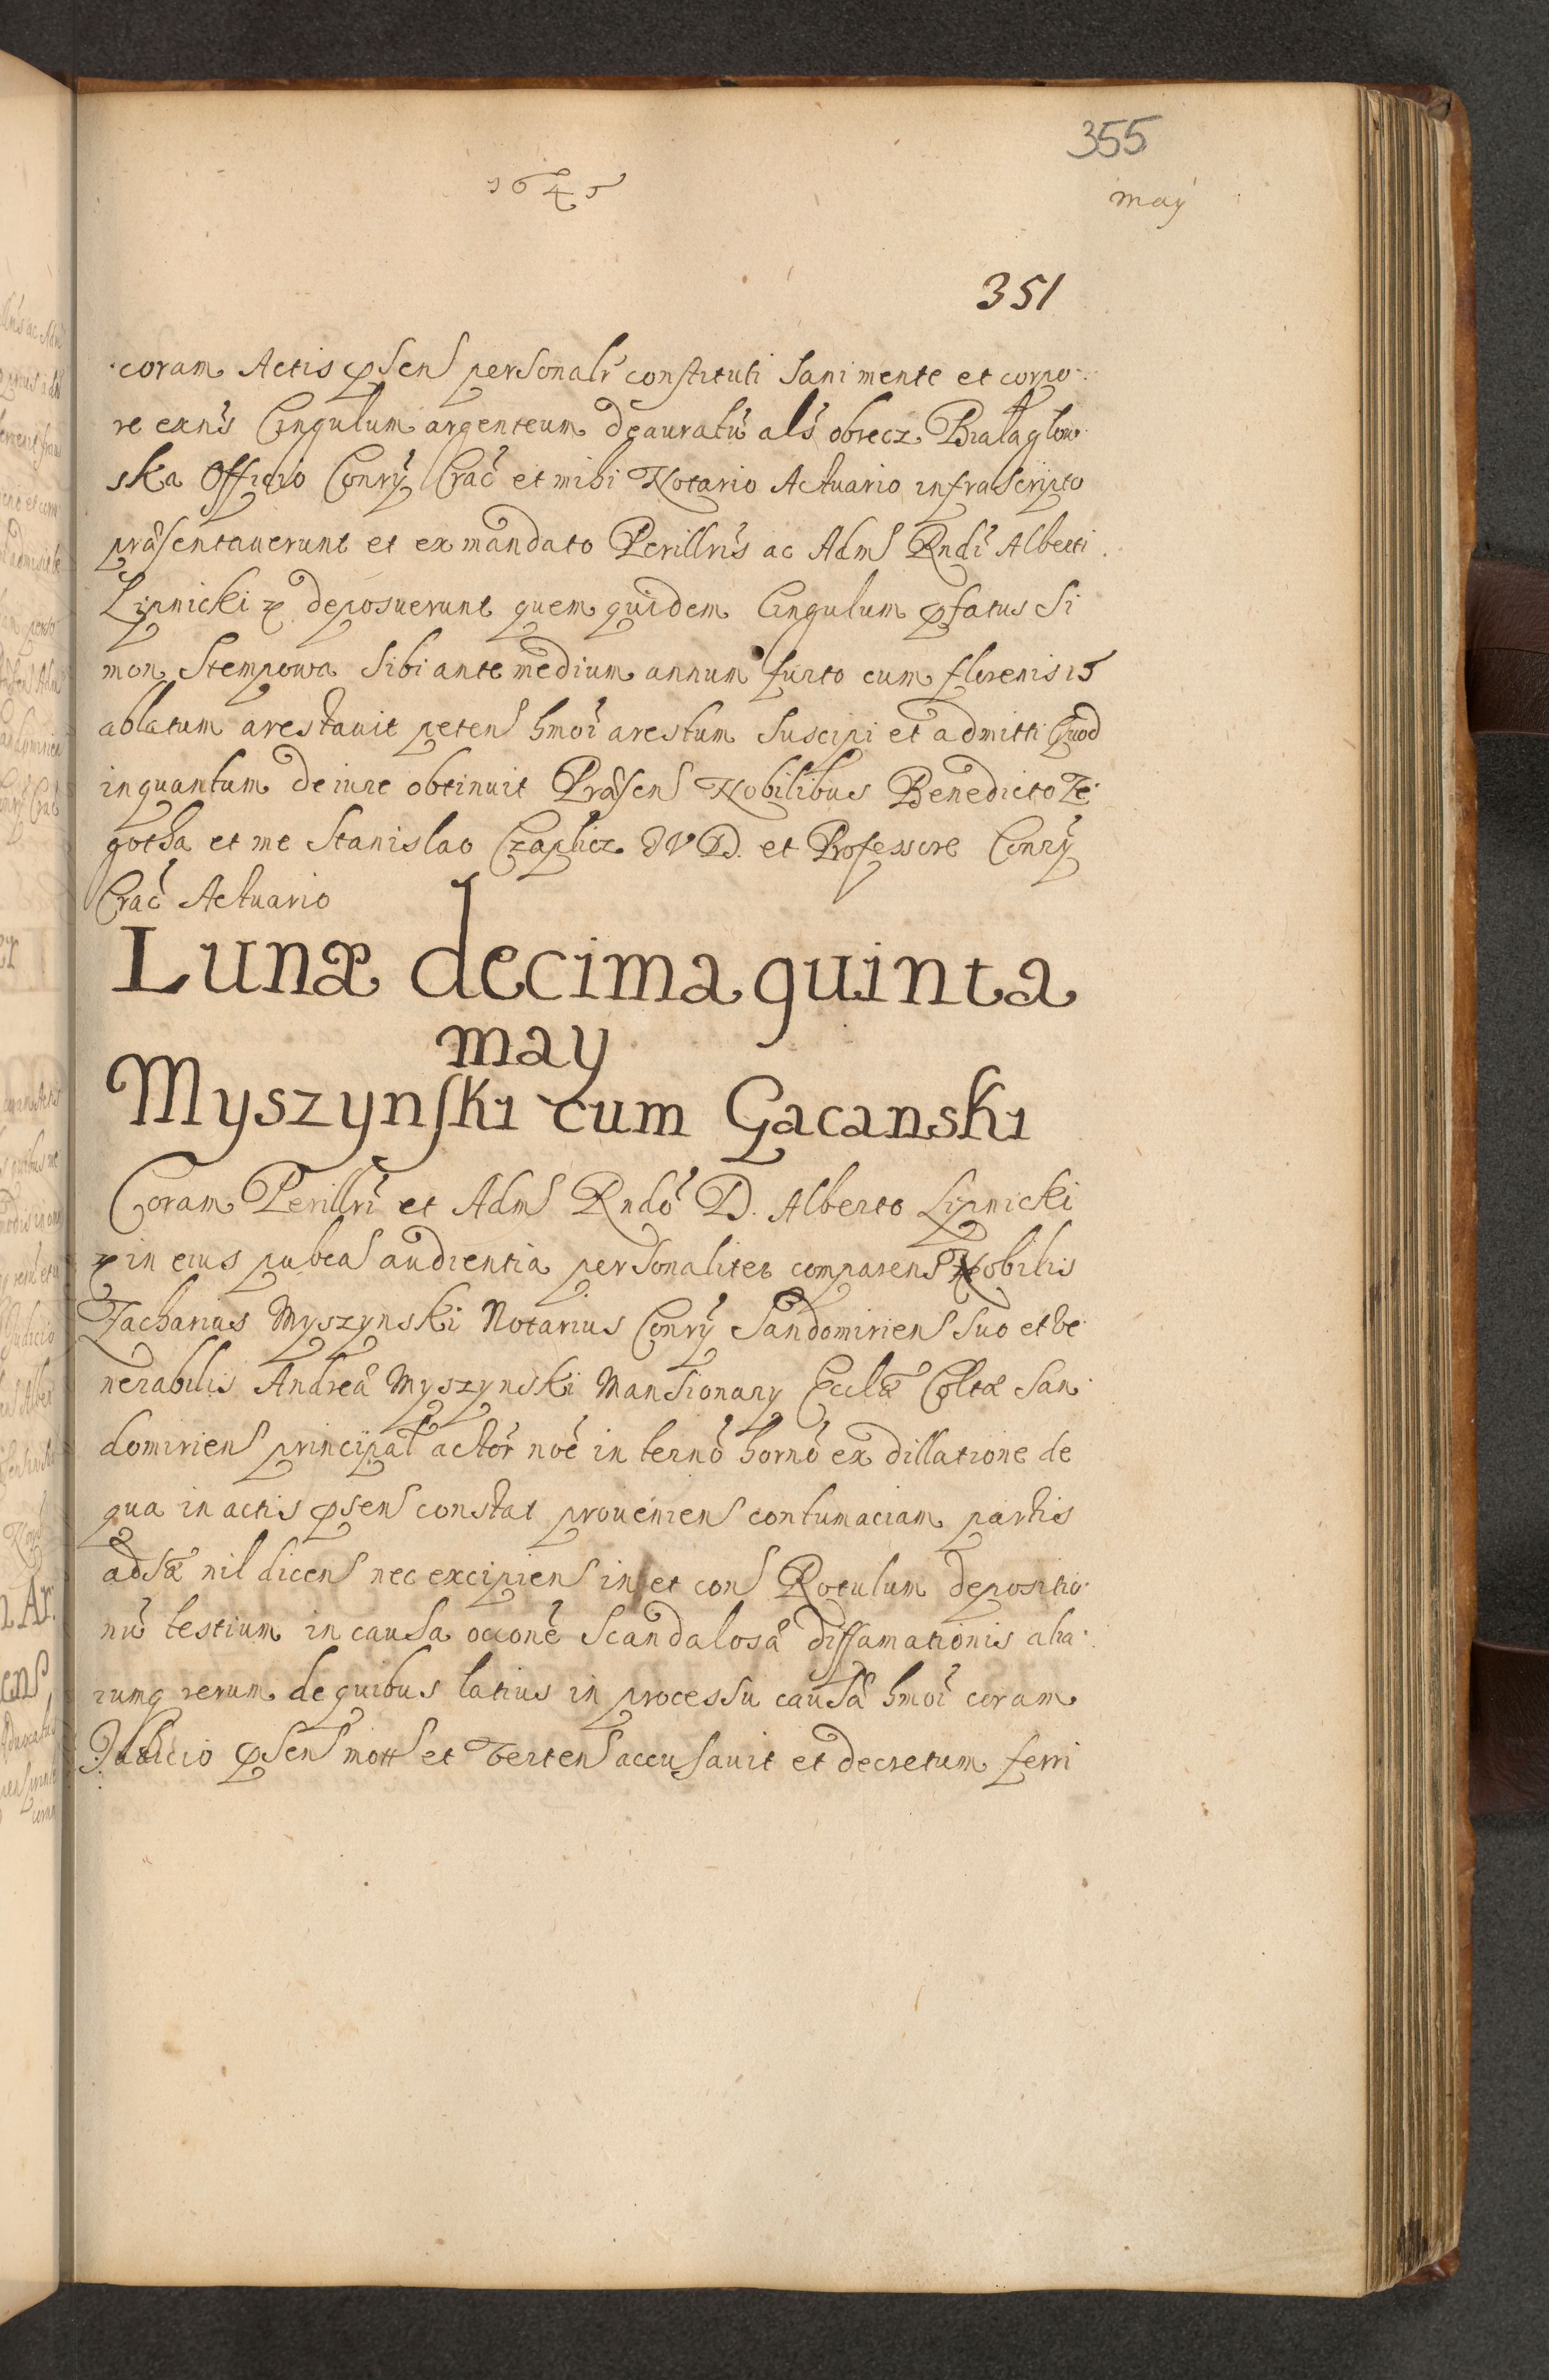 355
1645
may
351
coram Actis psens personalr constituti sani mente et corpo
re exnis Cingulum argenteum deauratu als obrecz Białaglow
ska Officio Conry Crac et mihi Notario Actuario infrascripto
præsentauerunt et ex mandato Perillris ac Adms Rndi Alberti
Lipnicki deposuerunt quem quidem Cingulum pfatus Si
mon Stempowa sibi ante medium annum furto cum florenis 15
ablatum arestauit petens hmoi arestum suscipi et admitti Quod
inquantum de iure obtinuit Præsen Nobilibus Benedicto Ze
gotha et me Stanislao Czaplicz IVD. et Professore Conry
Crac Actuario
Lunæ decima quinta
may
Myszynski cum Gacanski
Coram Perillri et Adms Rndo D. Alberto Lipnicki
in eius pubca audientia personaliter comparens Nobilis
Zacharias Myszynski Notarius Conry Sandomiriens suo et ve
nerabilis Andreæ Myszynski Mansionary Ecclæ Coltæ San
domiriens principal actor noe in termo horno ex dillatione de
qua in actis psens constat proueniens contumaciam partis
adsæ nil dicens nec excipiens in et con Rotulum depositio
nu testium in causa occone scandalosæ diffamationis alia
rumq rerum de quibus latius in processu causæ hmoi coram
Judicio psens mott et verten accusauit et decretum ferri